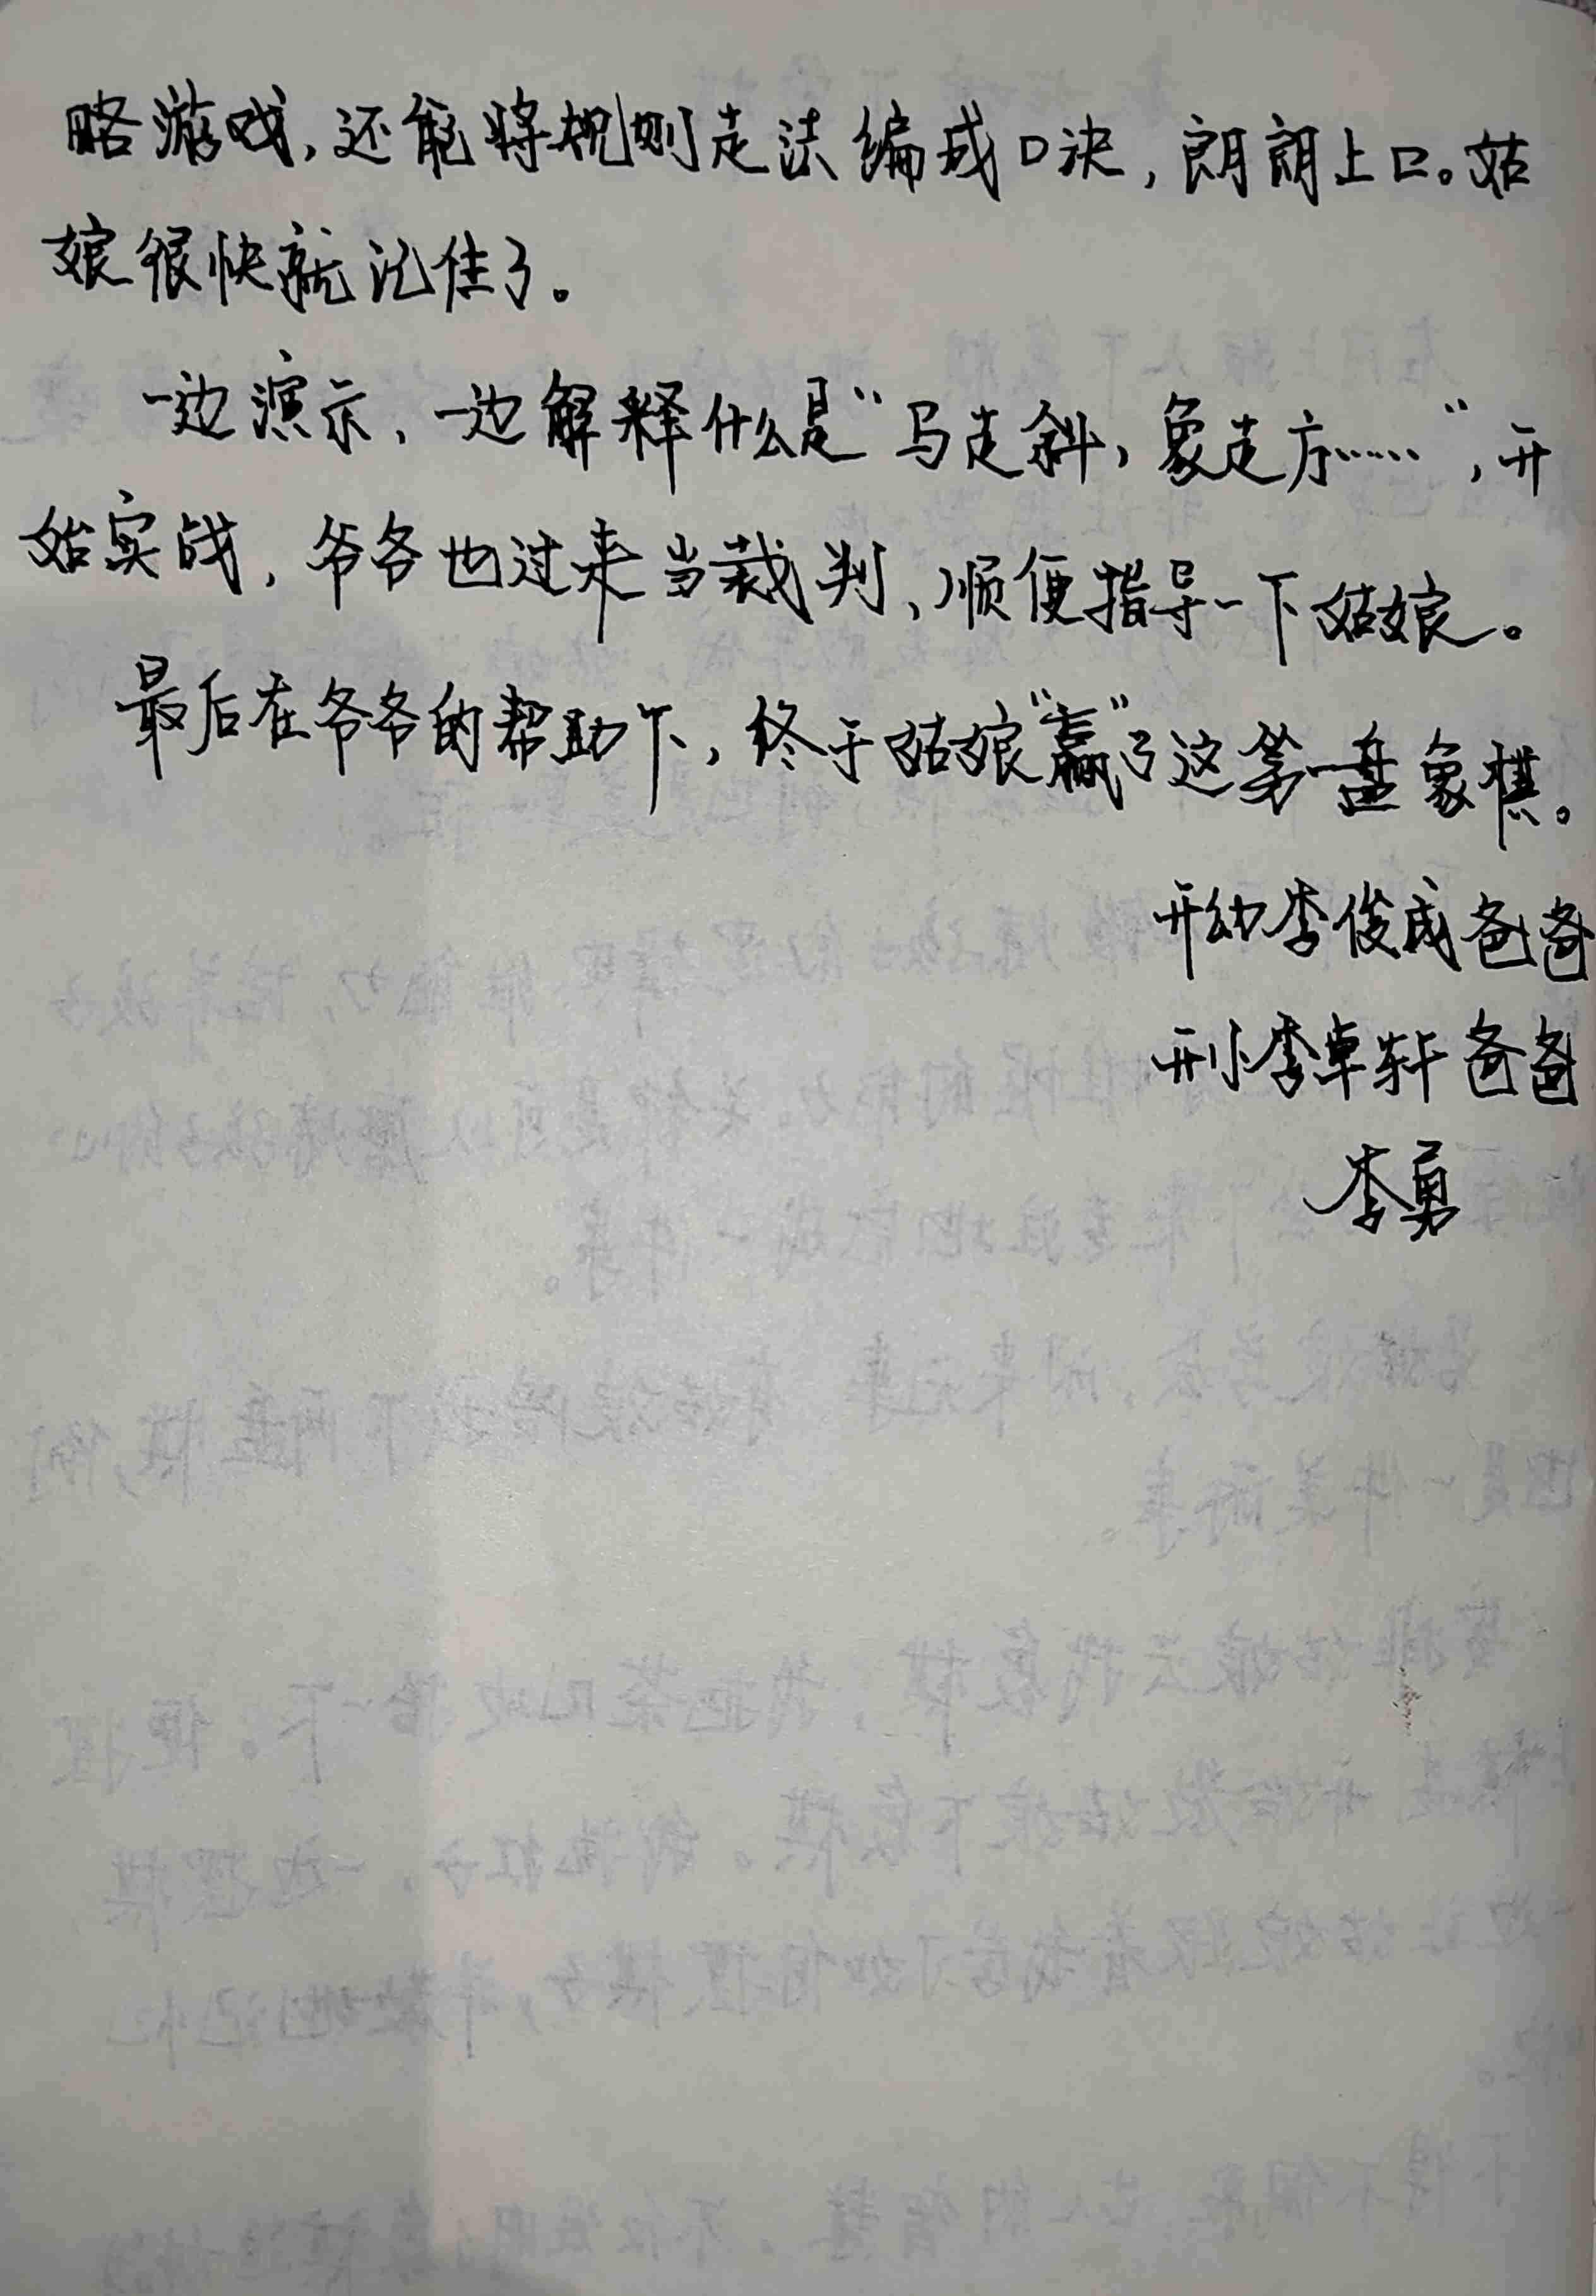 略游戏,还能将规则走法编成口诀,朗朗上口。姑
娘很快就记住了。
一边演示,一边解释什么是“马走斜,象走方……”,开
始实战,爷爷也过来当裁判、顺便指导一下姑娘。
最后在爷爷的帮助下,终于姑娘“赢”了这第一盘象棋。
开幼李俊成爸爸
开小李卓轩爸爸
李勇